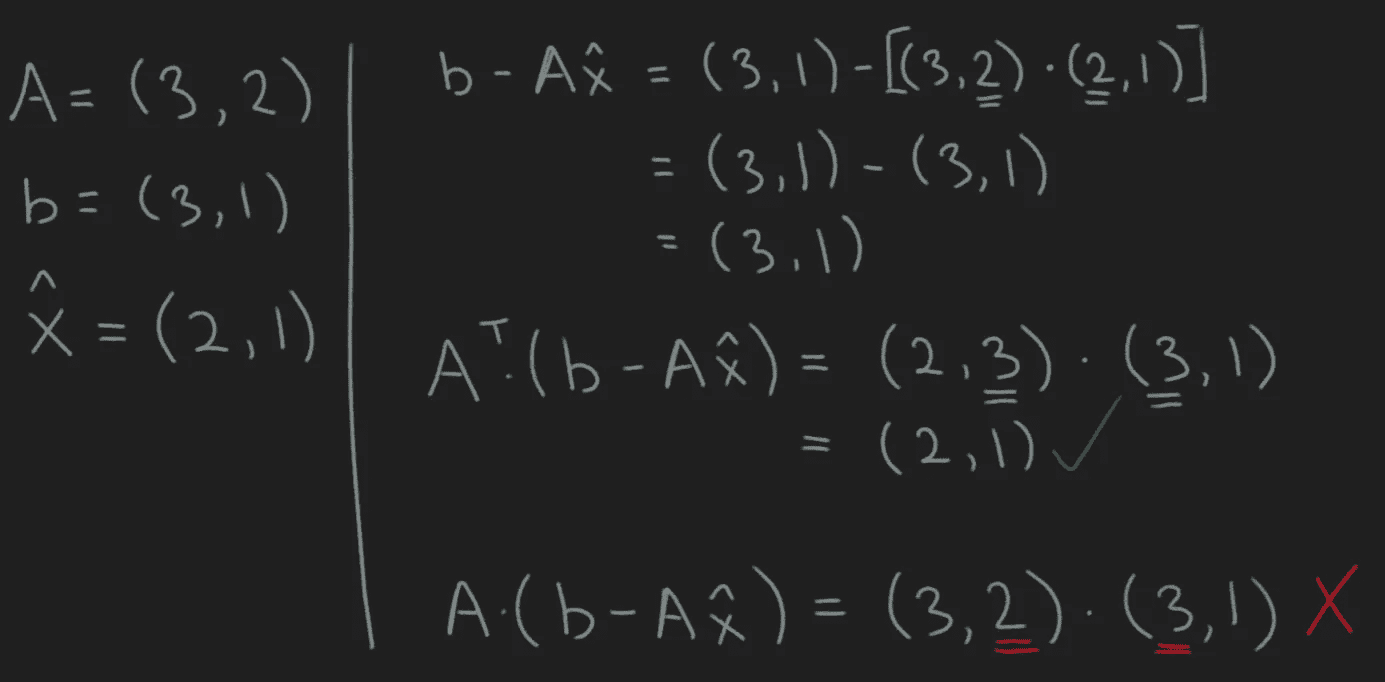 A = (3, 2)
b = (3, 1)
x̂ = (2, 1)
b - Ax̂ = (3, 1) - [(3, 2) · (2, 1)]
= (3, 1) - (3, 1)
= (3, 1)
Aᵀ·(b - Ax̂) = (2, 3) · (3, 1)
= (2, 1) ✓
A·(b - Ax̂) = (3, 2) · (3, 1) X